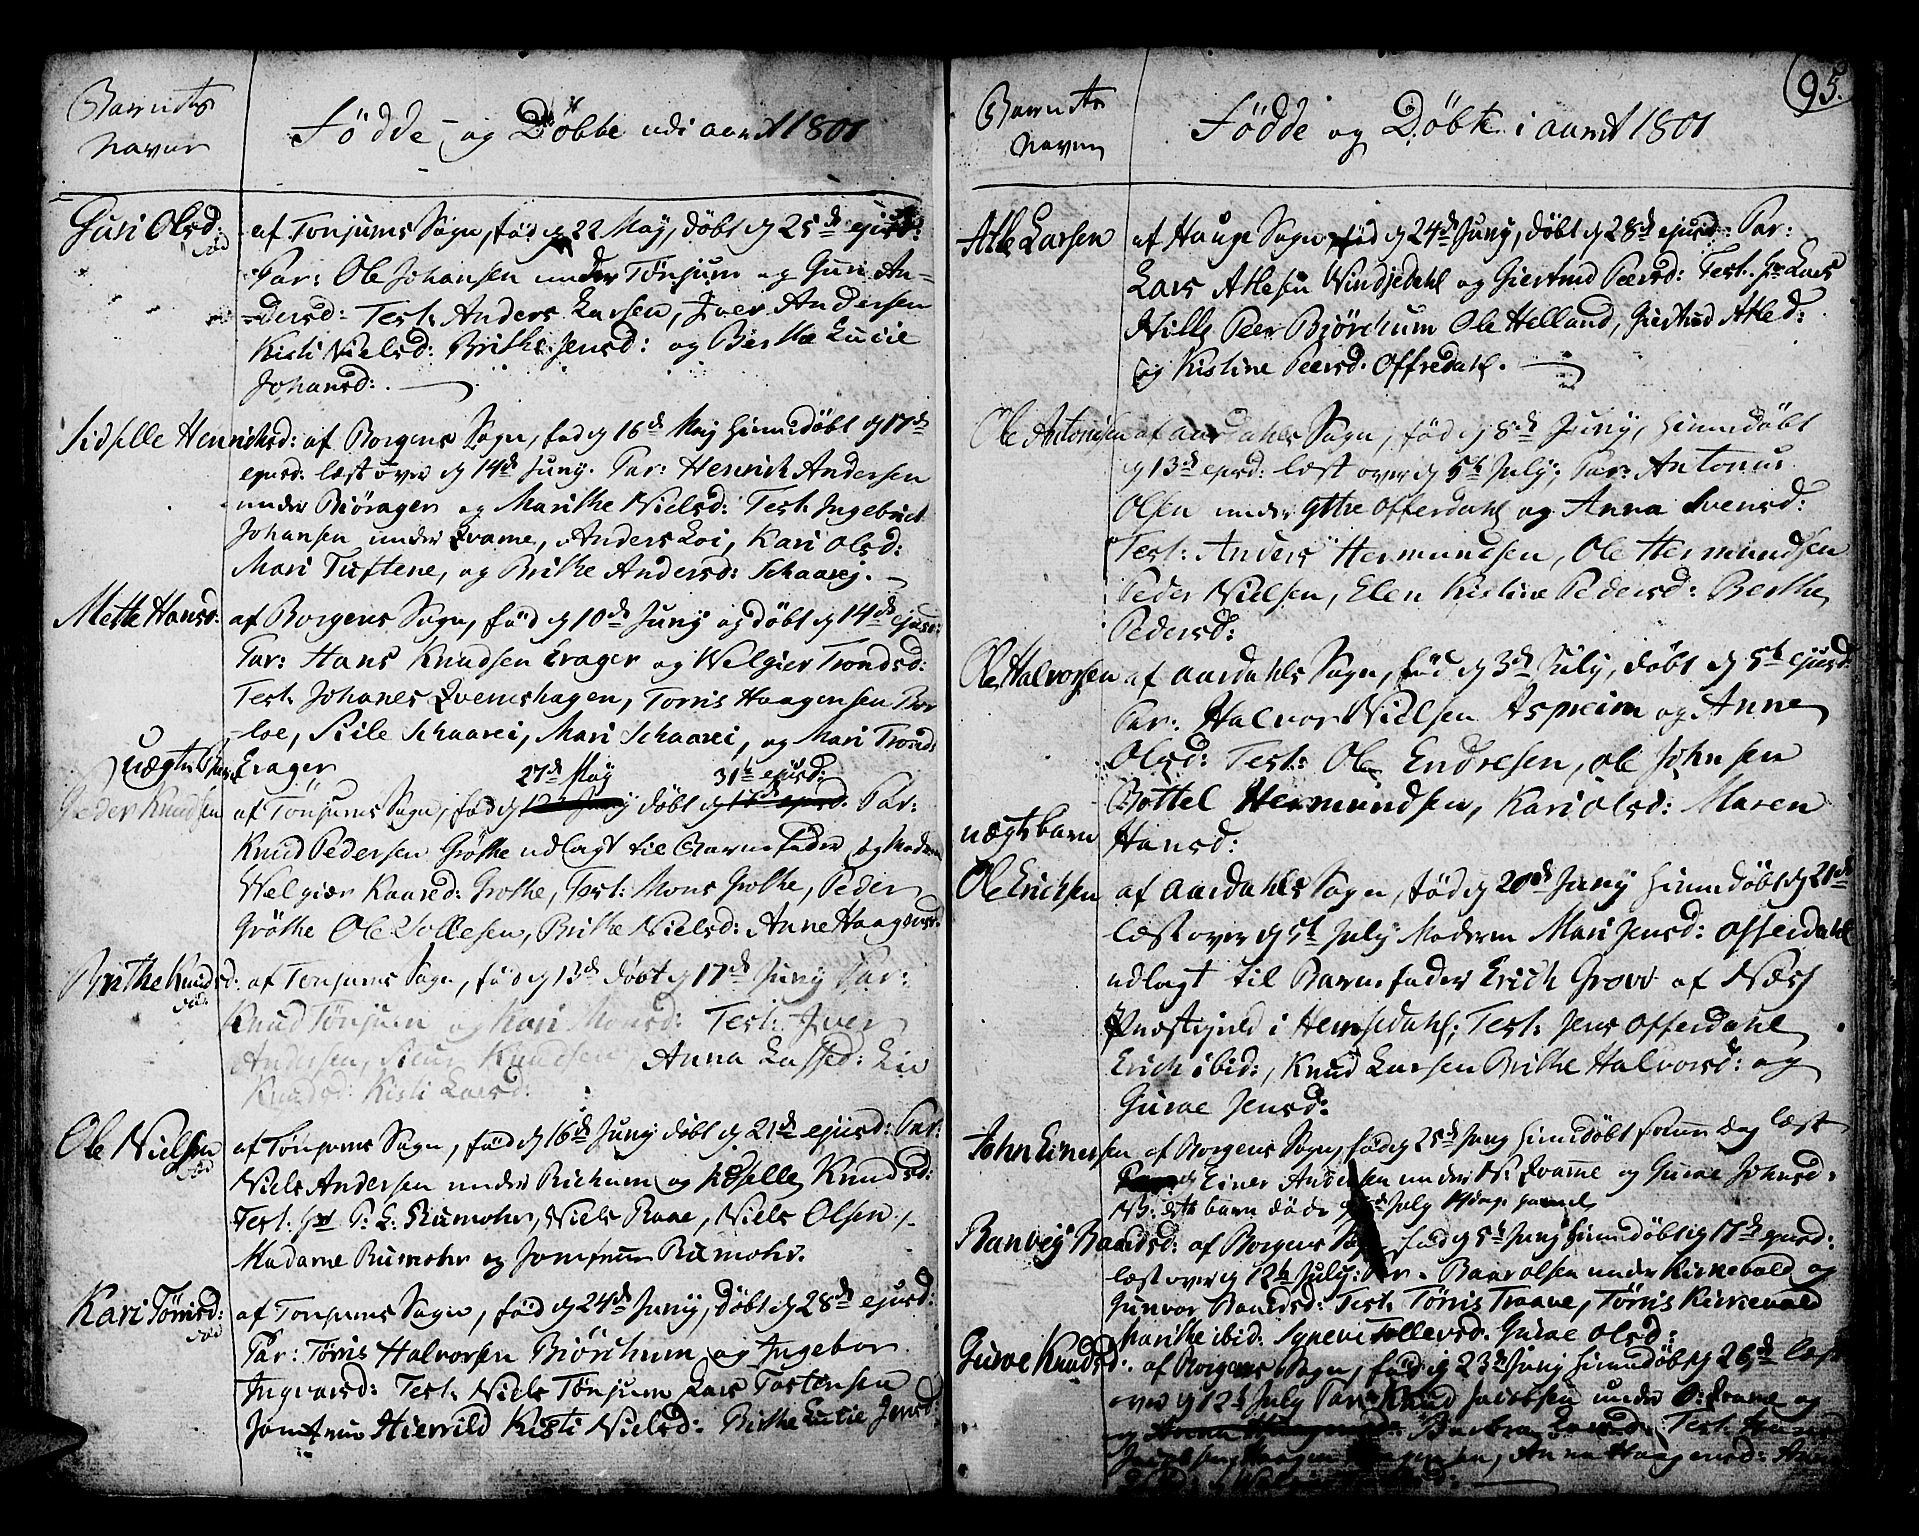 Barnets
Navne
Födde og Döbte udi aaret 1801
Guri Olsd:
död
af Tønjums Sogn, fød d 22 May, døbt d 25de ejusd:
Par: Ole Johansen under Tønjum og Guri An-
dersd: Test: Anders Larsen, Iver Andersen
Kisti Nielsd: Brithe Jensd: og Berthe Lucie
Johansd:
Sidselle Henrichsd: af Borgens Sogn, fød d 16de May hiemdøbt d 17de
ejusd: læst over d 14de Juny. Par: Henrich Andersen
under Biöragen og Marithe Nielsd: Test: Ingebrict
Johansen under Qvame, Anders Loi, Kari Olsd:
Mari Tuftene, og Brithe Andersd: Schaarej.
Mette Hansd: af Borgens Sogn, fød d 10de Juny og døbt d 14de ejusd:
Par: Hans Knudsen Erager og Welgier Trondsd:
Test: Johanes Qvemshagen, Torris Haagensen Bor
loe, Siile Schaarei, Mari Schaarei, og Mari Trondsd
Erager
uægte
27de May 31te ejusd:
Peder Knudsen af Tønjums Sogn, fød d døbt d Par:
Knud Pedersen Gröthe udlagt til Barnefader og Moderen
Welgiær Kaared: Grothe, Test: Mons Grothe, Peder
Gröthe Ole Tollesen, Brithe Nielsd: Anne Haagensd:
Brithe Knudsd:
död
af Tønjums Sogn, fød d 13de døbt d 17de Juny Par:
Knud Tønjum og Kari Monsd: Test: Iver
Andersen, Knudsen Anna Lassed: Liv
Knudsd: Kisti Larsd:
Ole Nielsen
död
af Tønjums Sogn, fød d 16de Juny døbt d 21de ejusd: Par:
Niels Andersen under Richum og Knudsd:
Test: Hr P. L. Rumohr, Niels Raae, Niels Olsen,
Madame Rumohr og Jomfrue Rumohr.
Kari Törrisd:
död
af Tønjums Sogn, fød d 24de Juny, døbt d 28de ejusd:
Par: Törris Halvorsen Biörchum og Ingebor
Ingvarsd: Test: Niels Tönjum Lars Tostensen
Jomfrue Hierrild Kisti Nielsd: Brithe Lucie Jensd:
95.
Barnets
Navne
Födde og Döbte i aaret 1801
Atle Larsen af Hauge Sogn fød d 24de Juny, døbt d 28de ejusd: Par:
Lars Atlesen Vindjedahl og Giertrud Peersd: Test: Hr Lars
Nills Peer Biörchum Ole Helland, Giertrud Atled:
og Kistine Peersd. Offredahl.
Ole Antonisen af aardahls Sogn, fød d 8de Juny, hiemdøbt
d 13de ejusd: læst over d 5te July; Par: Antonius
Olsen under yttre Offerdahl og Anna Svensd:
Test: Anders Hermundsen, Ole Hermundsen
Peder Nielsen, Elen Kistine Pedersd: Berthe
Pedersd:
Ole Halvorsen af aardahls Sogn, fød d 3de July, døbt d 5te ejusd:
Par: Halvor Nielsen Aspreim og Anne
Olsd: Test: Ole Endresen, Ole Johnsen
Bottel Hermundsen, Kari Olsd: Maren
Hansd:
uægte barn
Ole Erichsen af aardahls Sogn, fød d 20de Juny hiemdøbt d 21de
læst over d 5te July Moderen Mari Jensd: Offerdahl
udlagt til Barnefader Erich Grove af Næss
Præstegield i Hemsedahl; Test: Jens Offerdahl
Erich ibid:, Knud Larsen Brithe Halvorsd: og
Gurae Jensd:
John Einersen af Borgens Sogn, fød d 25de Juny hiemdøbt samme dag læst
Einer Andersen under N. Qvame og Gurae Johnsd:
NB: dete barn døde July
Ranveig Baardsd: af Borgens Sogn fød d 5te Juny hiemdøbt d 17de ejusd:
læst over d 12te July: Par. Baar Olsen under Kirkevold og
Gunvor Baardsd: Test: Törris Traave, Törris Kirkevold
Marithe ibid. Synevi Tollevsd. Gurae Olsd:
Gurve Knudsd. af Borgens Sogn, fød d 23de Juny hiemdøbt d 26de læst
over d 12te July Par: Knud Jacobsen under O: Qvame og
og Barbra Test:
Haagen Anna Haagensd: